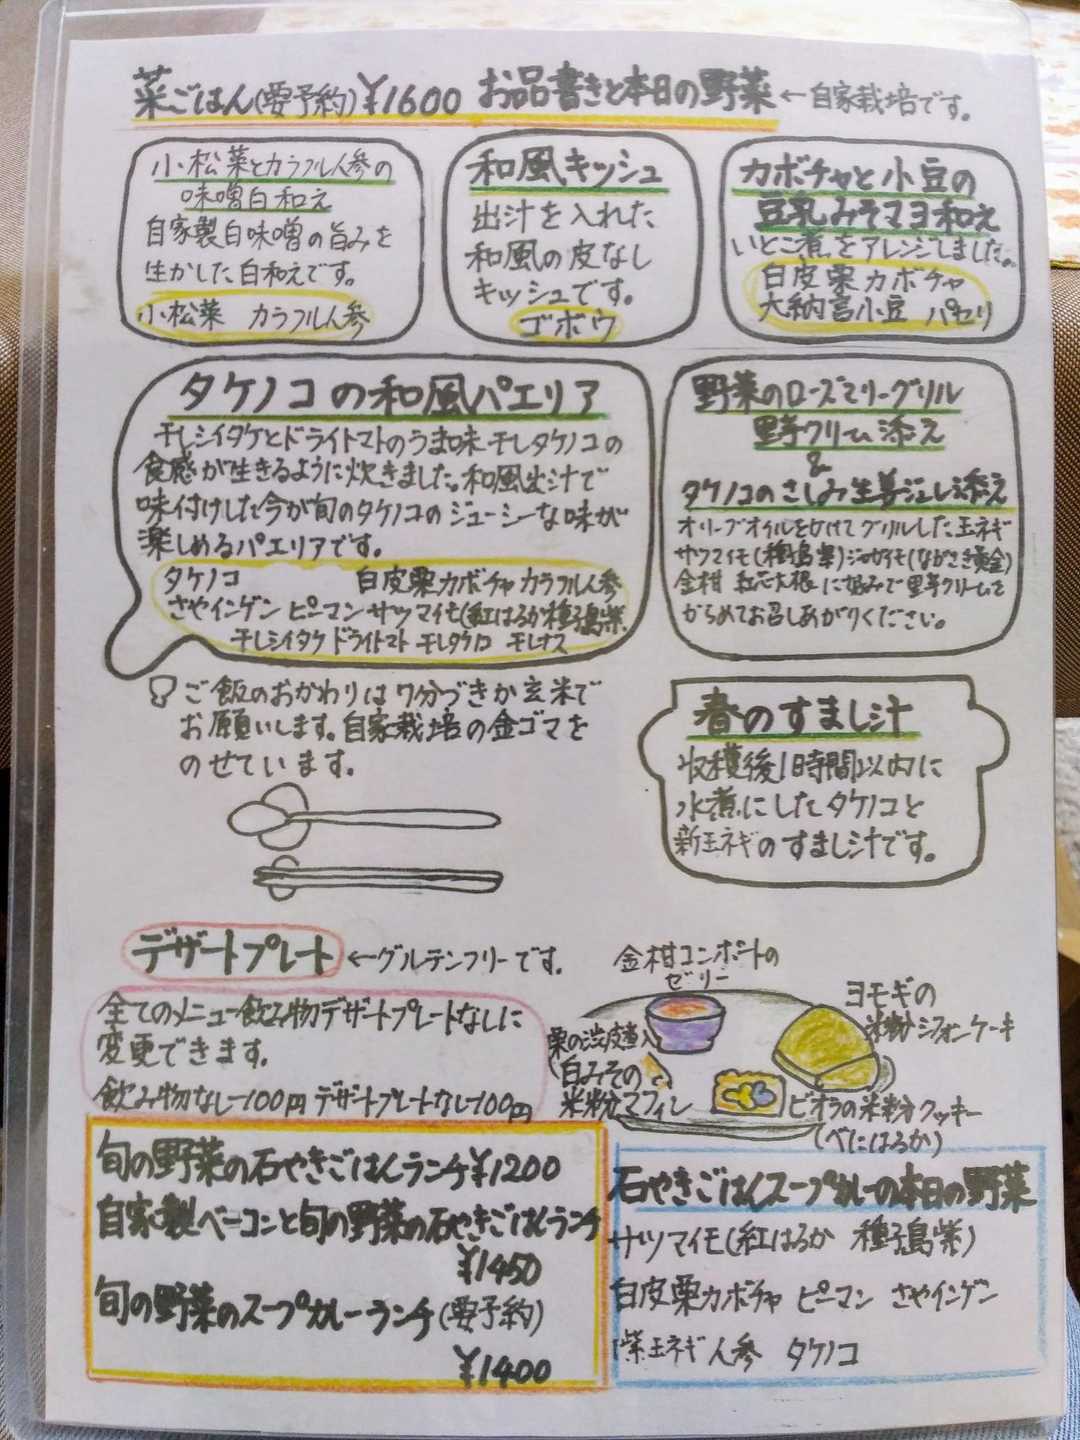 菜ごはん(要予約)¥1600 お品書きと本日の野菜←自家栽培です。
小松菜とカラフル人参の
味噌白和え
自家製白味噌の旨みを
生かした白和えです。
小松菜 カラフル人参
和風キッシュ
出汁を入れた
和風の皮なし
キッシュです。
ゴボウ
カボチャと小豆の
豆乳みそマヨ和え
いとこ煮をアレンジしました。
白皮栗カボチャ
大納言小豆 パセリ
タケノコの和風パエリア
干しシイタケとドライトマトのうま味干しタケノコの
食感が生きるように炊きました。和風出汁で
味付けした今が旬のタケノコのジューシーな味が
楽しめるパエリアです。
タケノコ 白皮栗カボチャ カラフル人参
さやインゲン ピーマン サツマイモ(紅はるか種子島紫)
干しシイタケ ドライトマト 干しタケノコ 干しナス
野菜のローズマリーグリル
里芋クリーム添え
&
タケノコのさしみ生姜ジュレ添え
オリーブオイルをかけてグリルした玉ネギ
サツマイモ(種子島紫)ジャガイモ(ながさき黄金)
金柑 紅芯大根 に好みで里芋クリームを
からめてお召しあがりください。
ご飯のおかわりは7分づきか玄米で
お願いします。自家栽培の金ゴマを
のせています。
春のすまし汁
収穫後1時間以内に
水煮にしたタケノコと
新玉ネギのすまし汁です。
デザートプレート ←グルテンフリーです。
全てのメニュー飲み物デザートプレートなしに
変更できます。
飲み物なし-100円 デザートプレートなし-100円
金柑コンポートの
ゼリー
ヨモギの
米粉シフォンケーキ
栗の渋皮煮入
(白みその
米粉マフィン
ビオラの米粉クッキー
(べにはるか)
旬の野菜の石やきごはんランチ¥1200
自家製ベーコンと旬の野菜の石やきごはんランチ
¥1450
旬の野菜のスープカレーランチ(要予約)
¥1400
石やきごはんスープカレーの本日の野菜
サツマイモ(紅はるか 種子島紫)
白皮栗カボチャ ピーマン さやインゲン
紫玉ネギ 人参 タケノコ